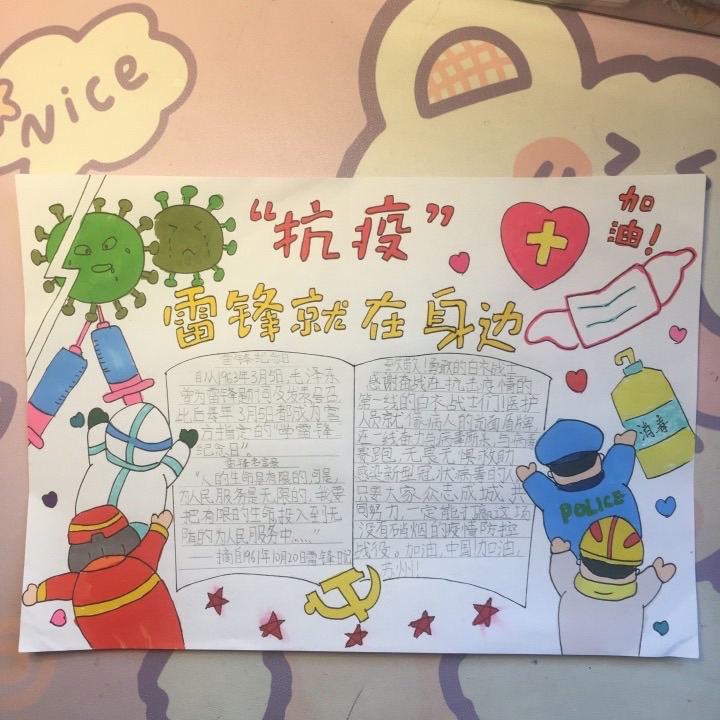 Nice
“抗疫”
加
油！
雷锋就在身边
雷锋纪念日
自从1963年3月5日，毛泽东
为雷锋
此后每年3月5日都成为官
方指定的“学雷锋
纪念日”。
“人的生命是有限的，可是，
为人民服务是无限的，我要
把有限的生命，投入到无
限的为人民服务中……”
——摘自1961年10月20日雷锋日记
致敬！勇敢的白衣战士
感谢奋战在抗击疫情的
第一线的白衣战士们！医护
人员就像病人的
赛跑，无畏无惧救助
感染新型冠状病毒的人
只要大家众志成城，共
同努力，一定能打赢这场
没有硝烟的疫情防控
战役。加油，中国！加油，
苏州！
消毒
POLICE